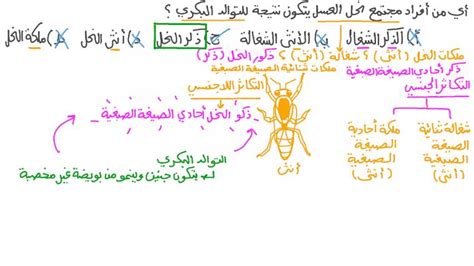 أي من أفراد مجتمع نحل العسل يتكون نتيجة للتوالد البكري ؟
أ) الذكر الشغال ب) الأنثى الشغالة ج) ذكر النحل د) أنثى النحل هـ) ملكة النحل
ملكات النحل (أنثى) ؟ شغالة (أنثى) ؟ ذكور النحل (ذكر)
ملكات ثنائية الصيغة الصبغية
ذكر أحادي الصيغة الصبغية
التكاثر اللاجنسي
التكاثر الجنسي
ذكور النحل أحادي الصيغة الصبغية
شغالة ثنائية الصيغة الصبغية (أنثى)
ملكة أحادية الصيغة الصبغية (أنثى)
أنثى
التوالد البكري
يتكون جنين وينمو من بويضة غير مخصبة